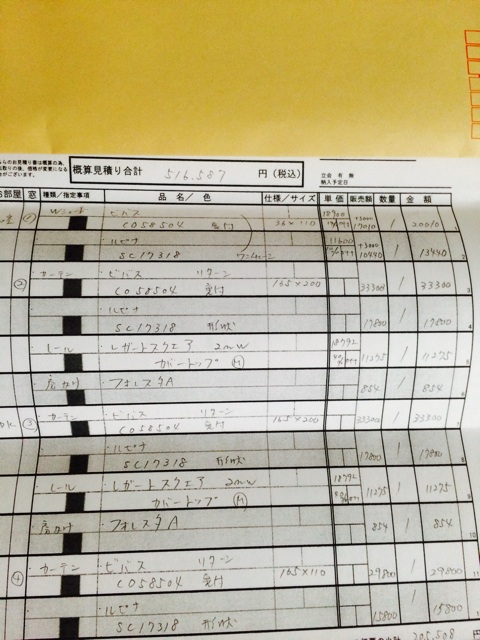 らのお見積り書は概算の為、
取りの後、価格が変更になる
ございます。
概算見積り合計 516.587 円(税込)
立会 有 無
納入予定日
お部屋 窓 種類/指定事項 品名/色 仕様/サイズ 単価 販売額 数量 金額
① ビバス 18900 +3000
CO58504 17010 1 20010 1
ルピナ 11600 +3000
SC17318 10440 1 13440 2
② カーテン ビバス リターン
CO58504 165×200 33300 1 33300 3
ルピナ
SC17318 形状 17800 1 17800 4
レール レガートスクエア 2mW 18792
カバートップ M 11275 1 11275 5
房かけ フォレスタA 854 1 854 6
③ カーテン ビバス リターン
CO58504 165×200 33300 1 33300 7
ルピナ
SC17318 形状 17800 1 17800 8
レール レガートスクエア 2mW 18792
カバートップ M 11275 1 11275 9
房かけ フォレスタA 854 1 854 10
④ カーテン ビバス リターン
CO58504 165×110 29800 1 29800 11
ルピナ
SC17318 形状 15800 1 15800
小計 205,508